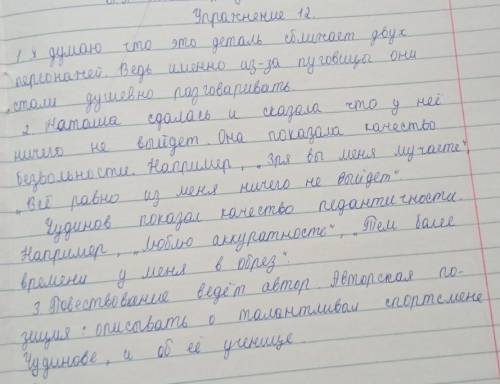 Упражнение 12.
1. Я думаю что это деталь сближает двух
персонажей. Ведь именно из-за пуговицы они
стали душевно разговаривать.
2. Наташа сдалась и сказала что у неё
ничего не выйдет. Она показала качество
безвольности. Например, „Зря вы меня мучаете",
„Всё равно из меня ничего не выйдет"
Чудинов показал качество педантичности.
Например, „Люблю аккуратность", „Тем более
времени у меня в обрез"
3. Повествование ведёт автор. Авторская по-
зиция: описывать о талантливом спортсмене
Чудинове, и об её ученице.